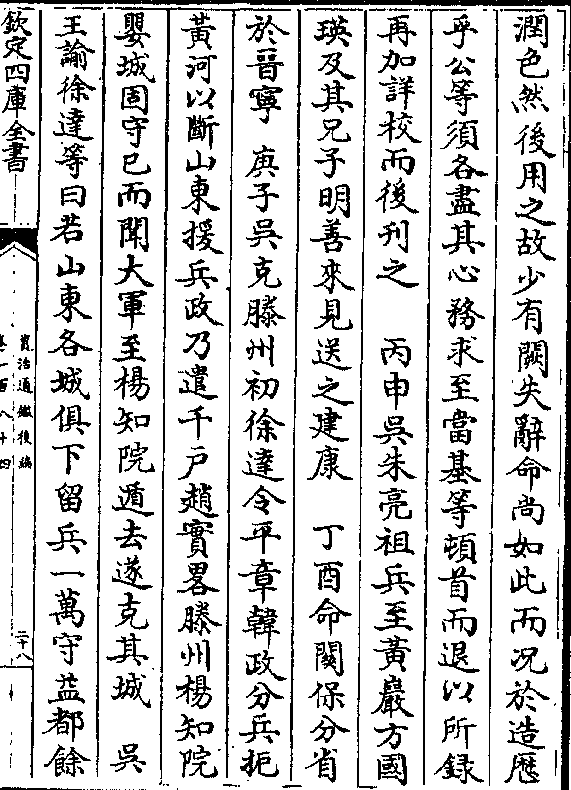 潤色然後用之故少有闕失辭命尚如此而况於造厯
乎公等須各盡其心務求至當基等頓首而退以所録
再加詳校而後刊之　丙申吳朱亮祖兵至黃巖方國
瑛及其兄子明善來見送之建康　丁酉命關保分省
於晉寧　庚子吳克滕州初徐達令平章韓政分兵扼
黃河以斷山東援兵政乃遣千戸趙實畧滕州楊知院
嬰城固守已而聞大軍至楊知院遁去遂克其城　吳
王諭徐達等曰若山東各城俱下留兵一萬守益都餘
欽定四庫全書
資治通鑑後編
卷一百八十四
二十八